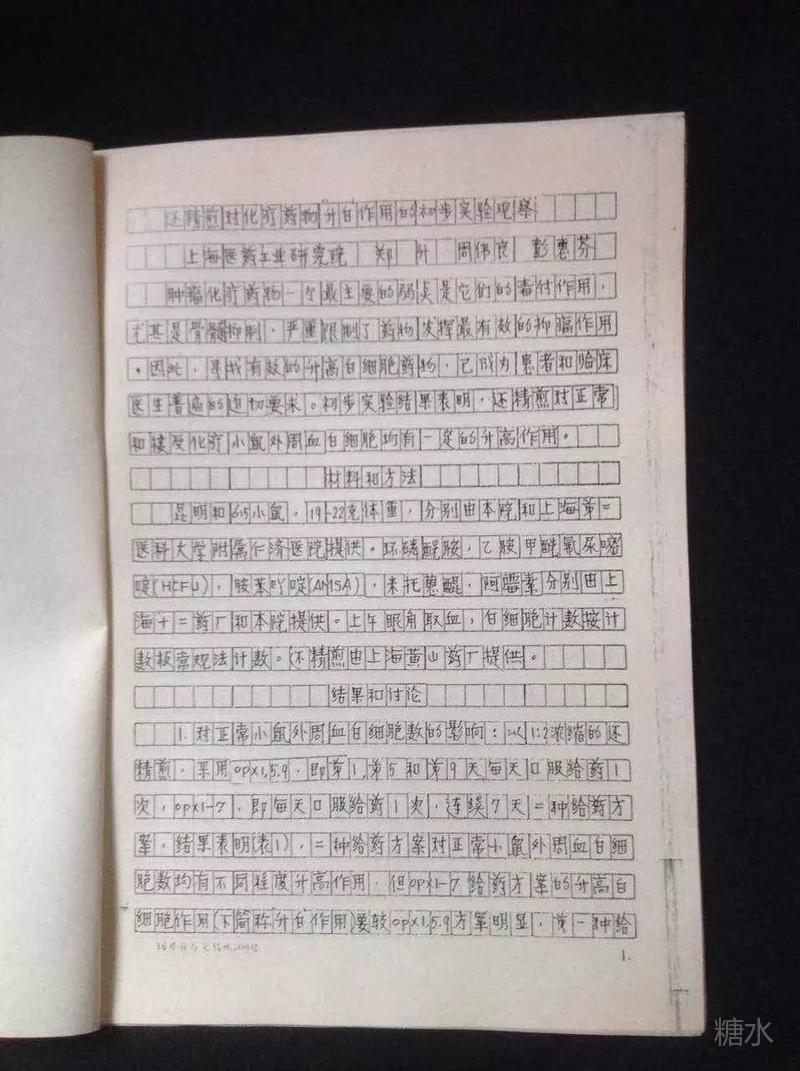 还精煎对化疗药物“升白”作用的初步实验观察
上海医药工业研究院 郑 升 周伟良 彭惠芬
肿瘤化疗药物一个最主要的弱点是它们的毒付作用,
尤其是骨髓抑制,严重限制了药物发挥最有效的抑瘤作用
。因此,寻找有效的升高白细胞药物,已成为患者和临床
医生普遍的迫切要求。初步实验结果表明,还精煎对正常
和接受化疗小鼠外周血白细胞均有一定的升高作用。
材料和方法
昆明和615小鼠,19-22克体重,分别由本院和上海第二
医科大学附属仁济医院提供。环磷酰胺,乙胺甲酰氧尿嘧
啶(HCFU),胺苯吖啶(AMSA),米托蒽醌,阿霉素分别由上
海十二药厂和本院提供。上午眼角取血,白细胞计数按计
数板常规法计数。还精煎由上海黄山药厂提供。
结果和讨论
1.对正常小鼠外周血白细胞数的影响:以1:2浓缩的还
精煎,采用opx1.5.9,即第1,第5和第9天每天口服给药1
次,opx1-7,即每天口服给药1次,连续7天二种给药方
案,结果表明(表1),二种给药方案对正常小鼠外周血白细
胞数均有不同程度升高作用,但opx1-7给药方案的升高白
细胞作用(下简称“升白”作用)要较opx1.5.9方案明显,第一种给
1.
糖水